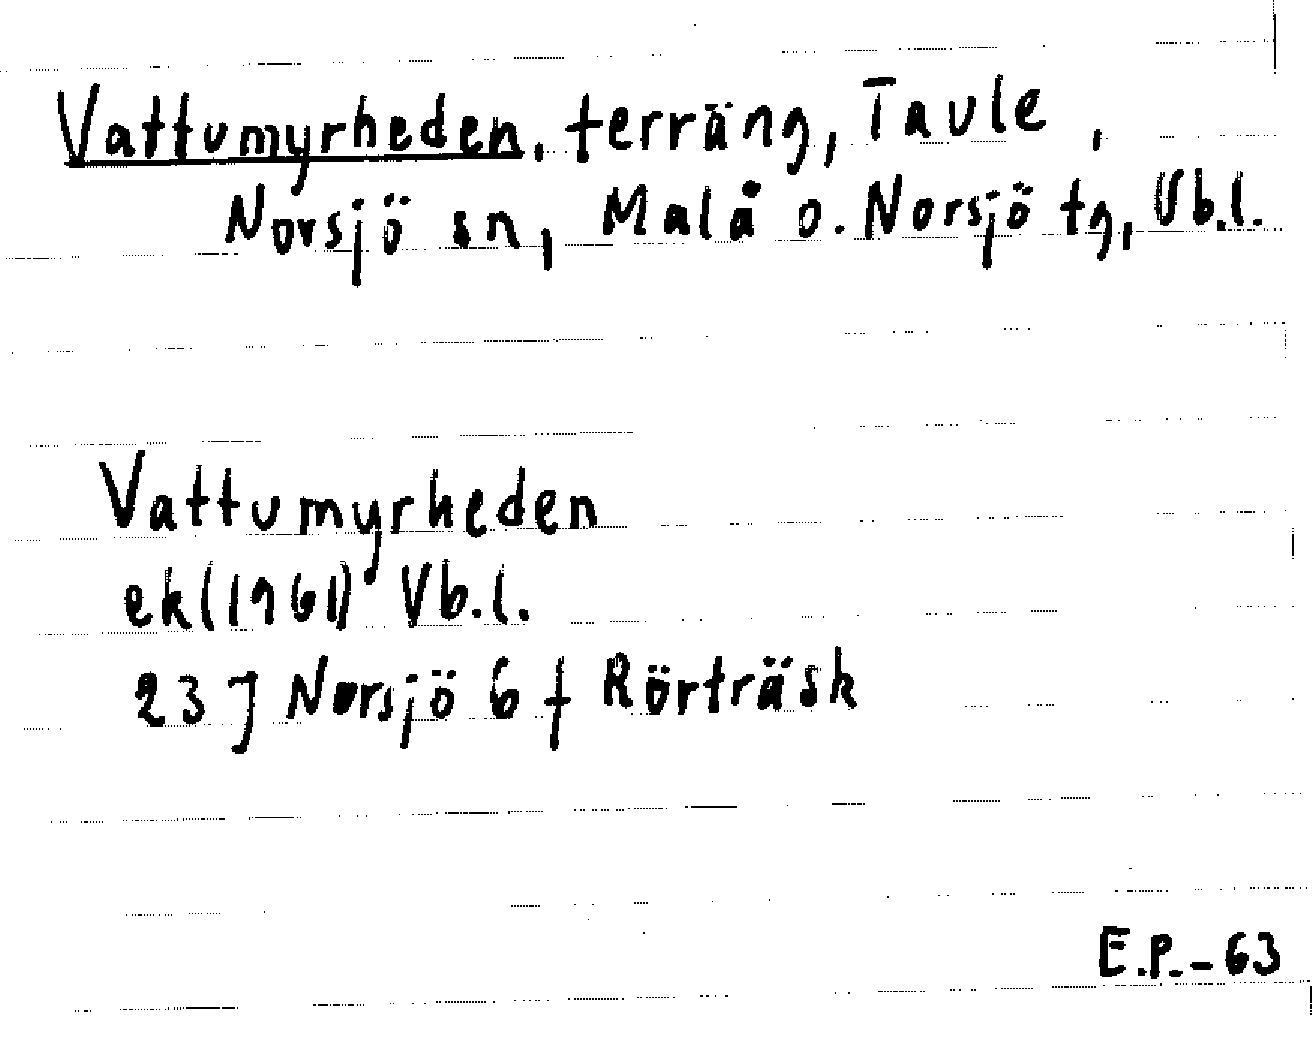 Vattumyrheden, terräng, Taule,
Norsjö sn, Malå o. Norsjö tg, Vb.l.
Vattumyrheden
ek(1961) Vb.l.
23 J Norsjö 6 f Rörträsk
E.P.-63